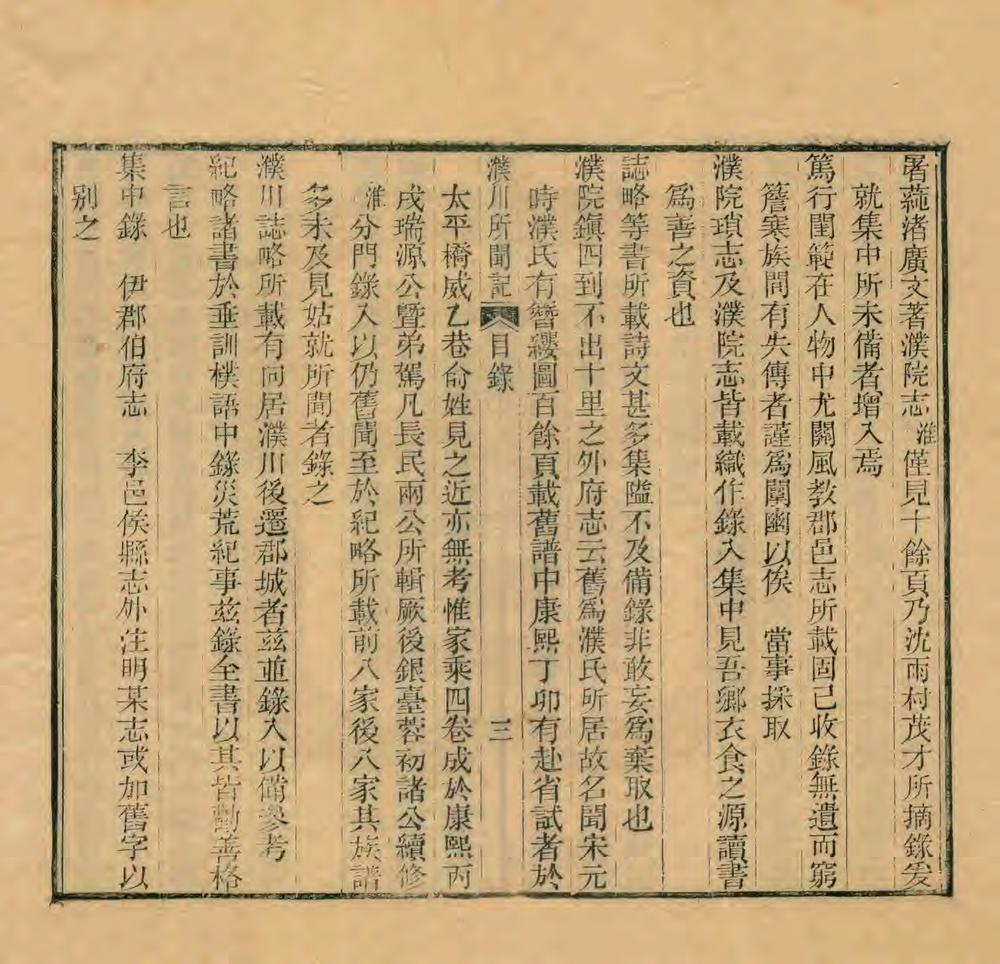 署菰渚廣文著濮院志淮僅見十餘頁乃沈雨村茂才所摘錄爰
就集中所未備者增入焉
篤行閨範在人物中尤關風教郡邑志所載固已收錄無遺而窮
簷寒族間有失傳者謹為闡幽以俟　當事採取
濮院瑣志及濮院志皆載織作錄入集中見吾鄉衣食之源讀書
為善之資也
誌略等書所載詩文甚多集隘不及備錄非敢妄為棄取也
濮院鎮四到不出十里之外府志云舊為濮氏所居故名聞宋元
時濮氏有簪纓圖百餘頁載舊譜中康熙丁卯有赴省試者於
濮川所聞記　目錄　三
太平橋威乙巷俞姓見之近亦無考惟家乘四卷成於康熙丙
戌瑞源公暨弟駕凡長民兩公所輯厥後銀臺蓉初諸公續修
淮分門錄入以仍舊聞至於紀略所載前八家後八家其族譜
多未及見姑就所聞者錄之
濮川誌略所載有向居濮川後遷郡城者茲並錄入以備參考
紀略諸書於垂訓樸語中錄災荒紀事茲錄全書以其皆勸善格
言也
集中錄　伊郡伯府志　李邑侯縣志外注明某志或加舊字以
別之